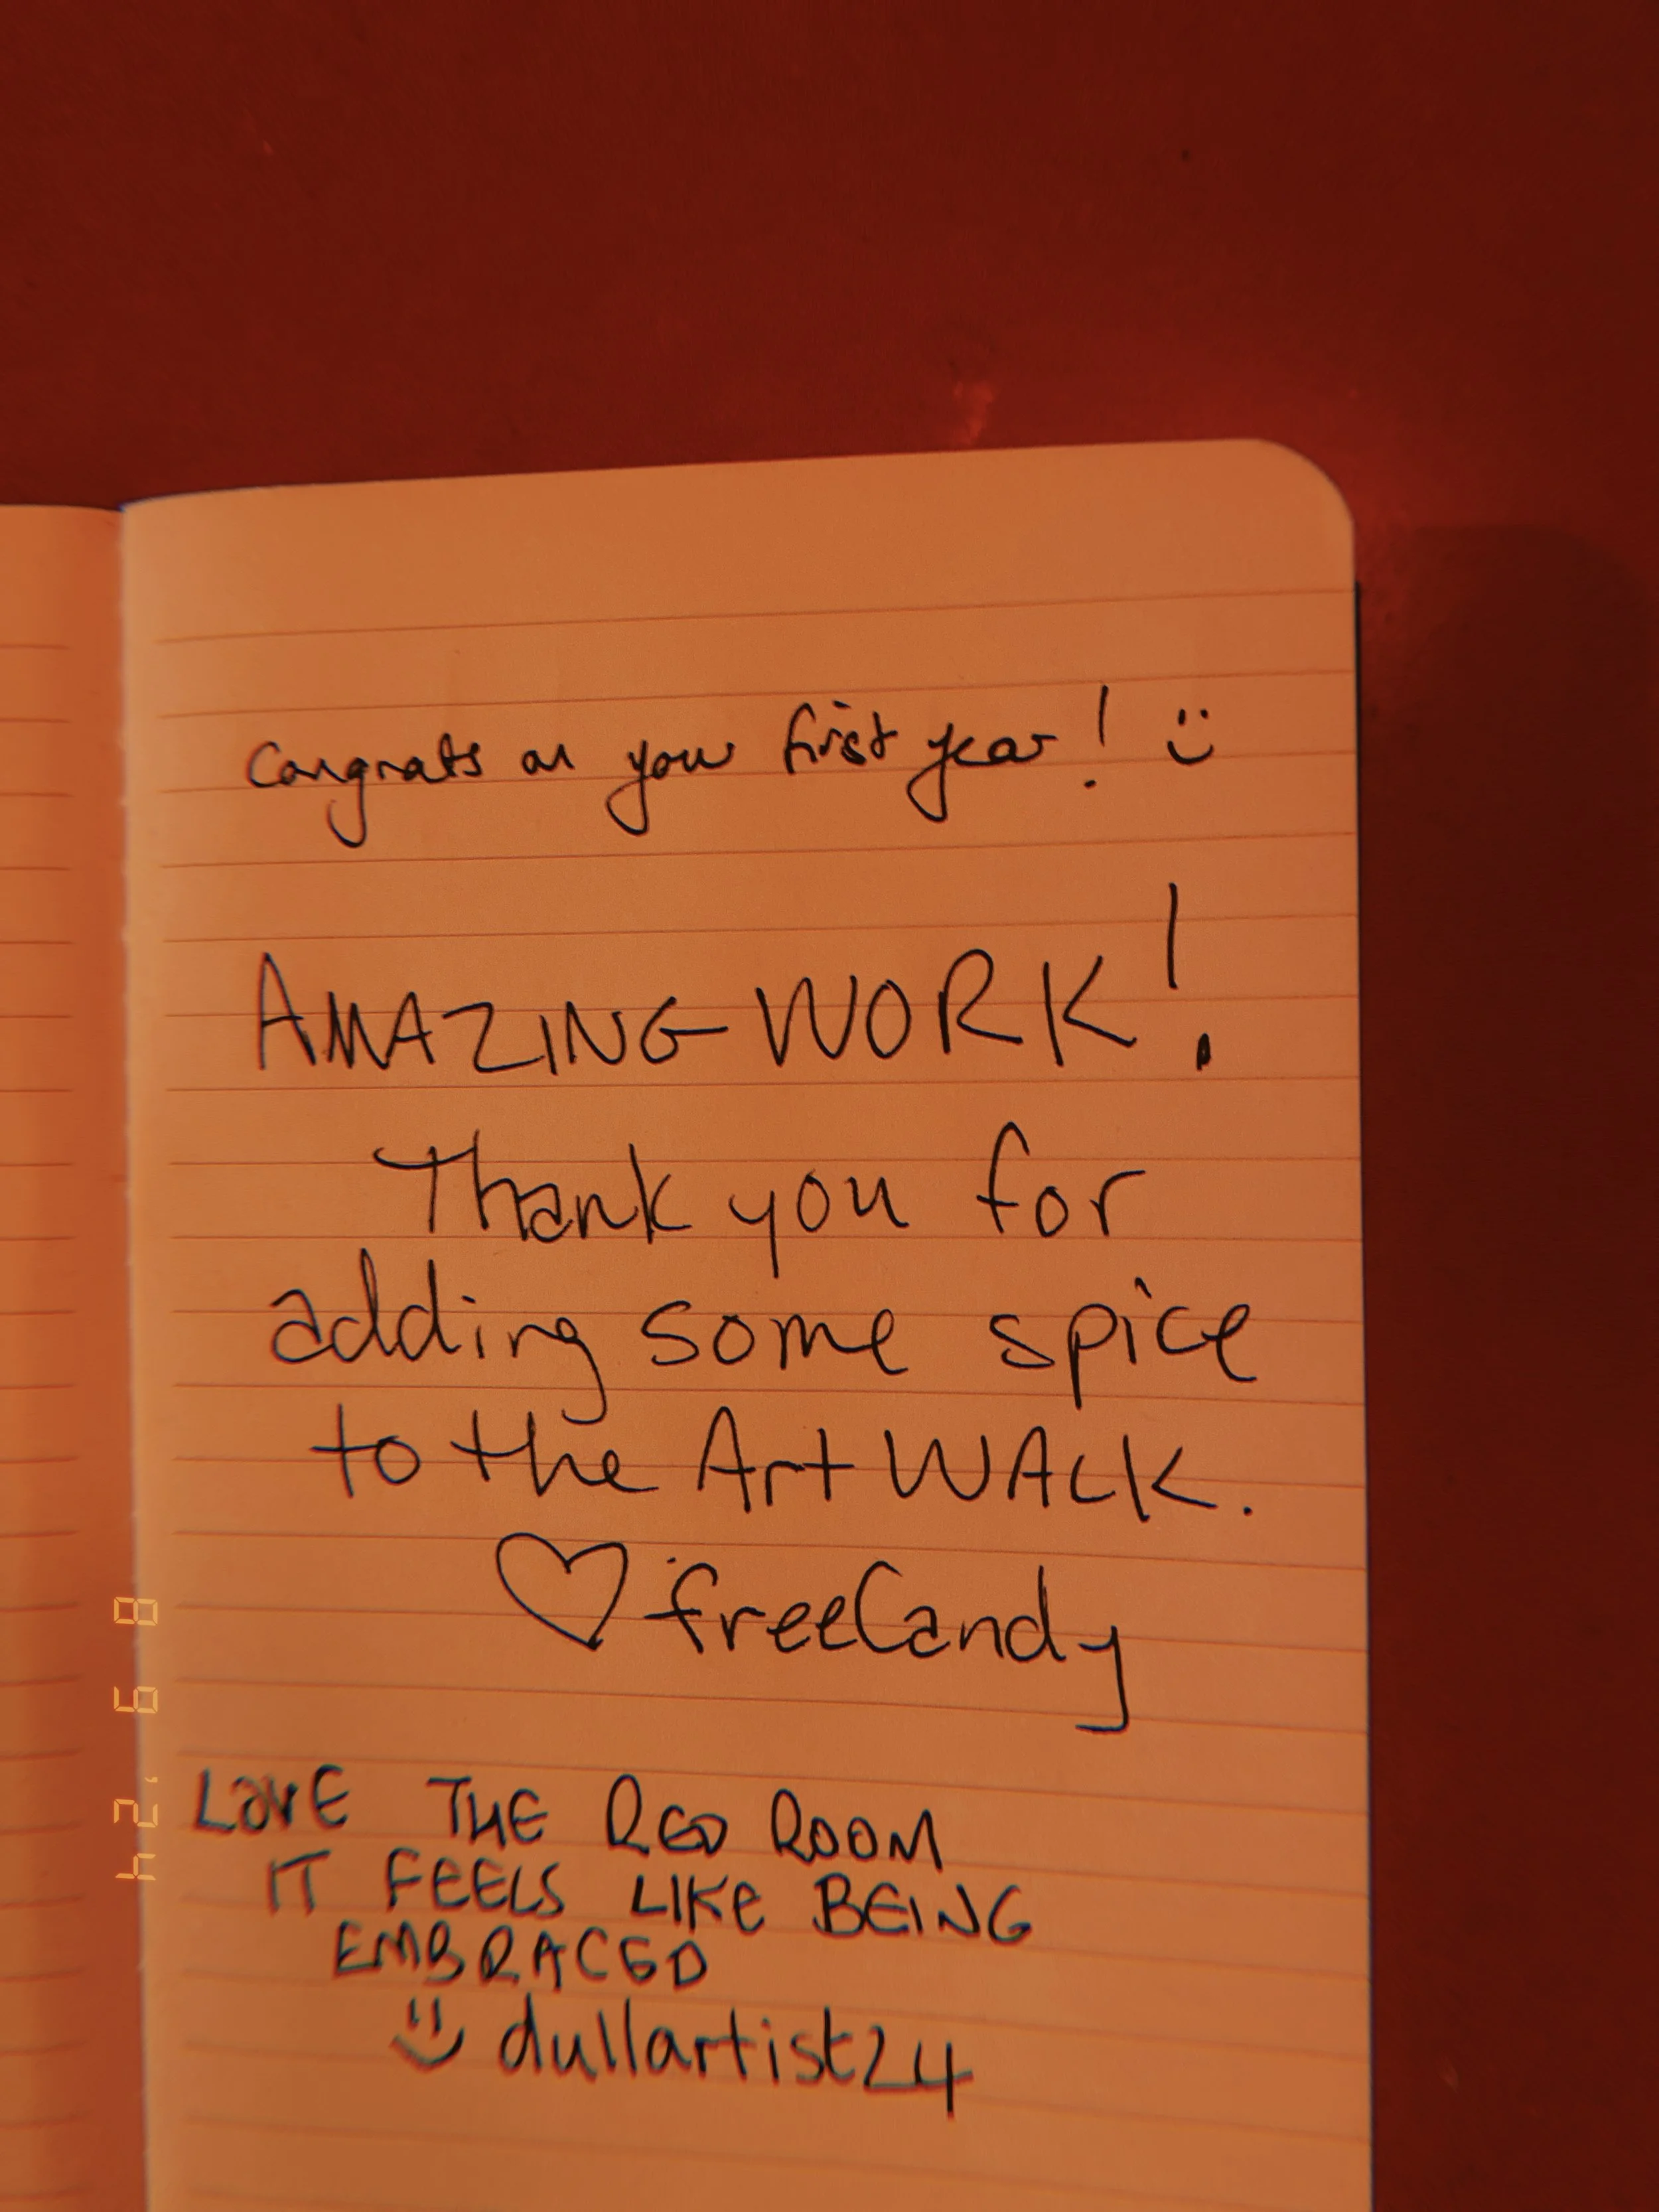 Congrats on your first year! :)
AMAZING WORK!
Thank you for
adding some spice
to the Art WALK.
♡ freeCandy
LOVE THE RED ROOM
IT FEELS LIKE BEING
EMBRACED
:) dullartist24
8 6 '24